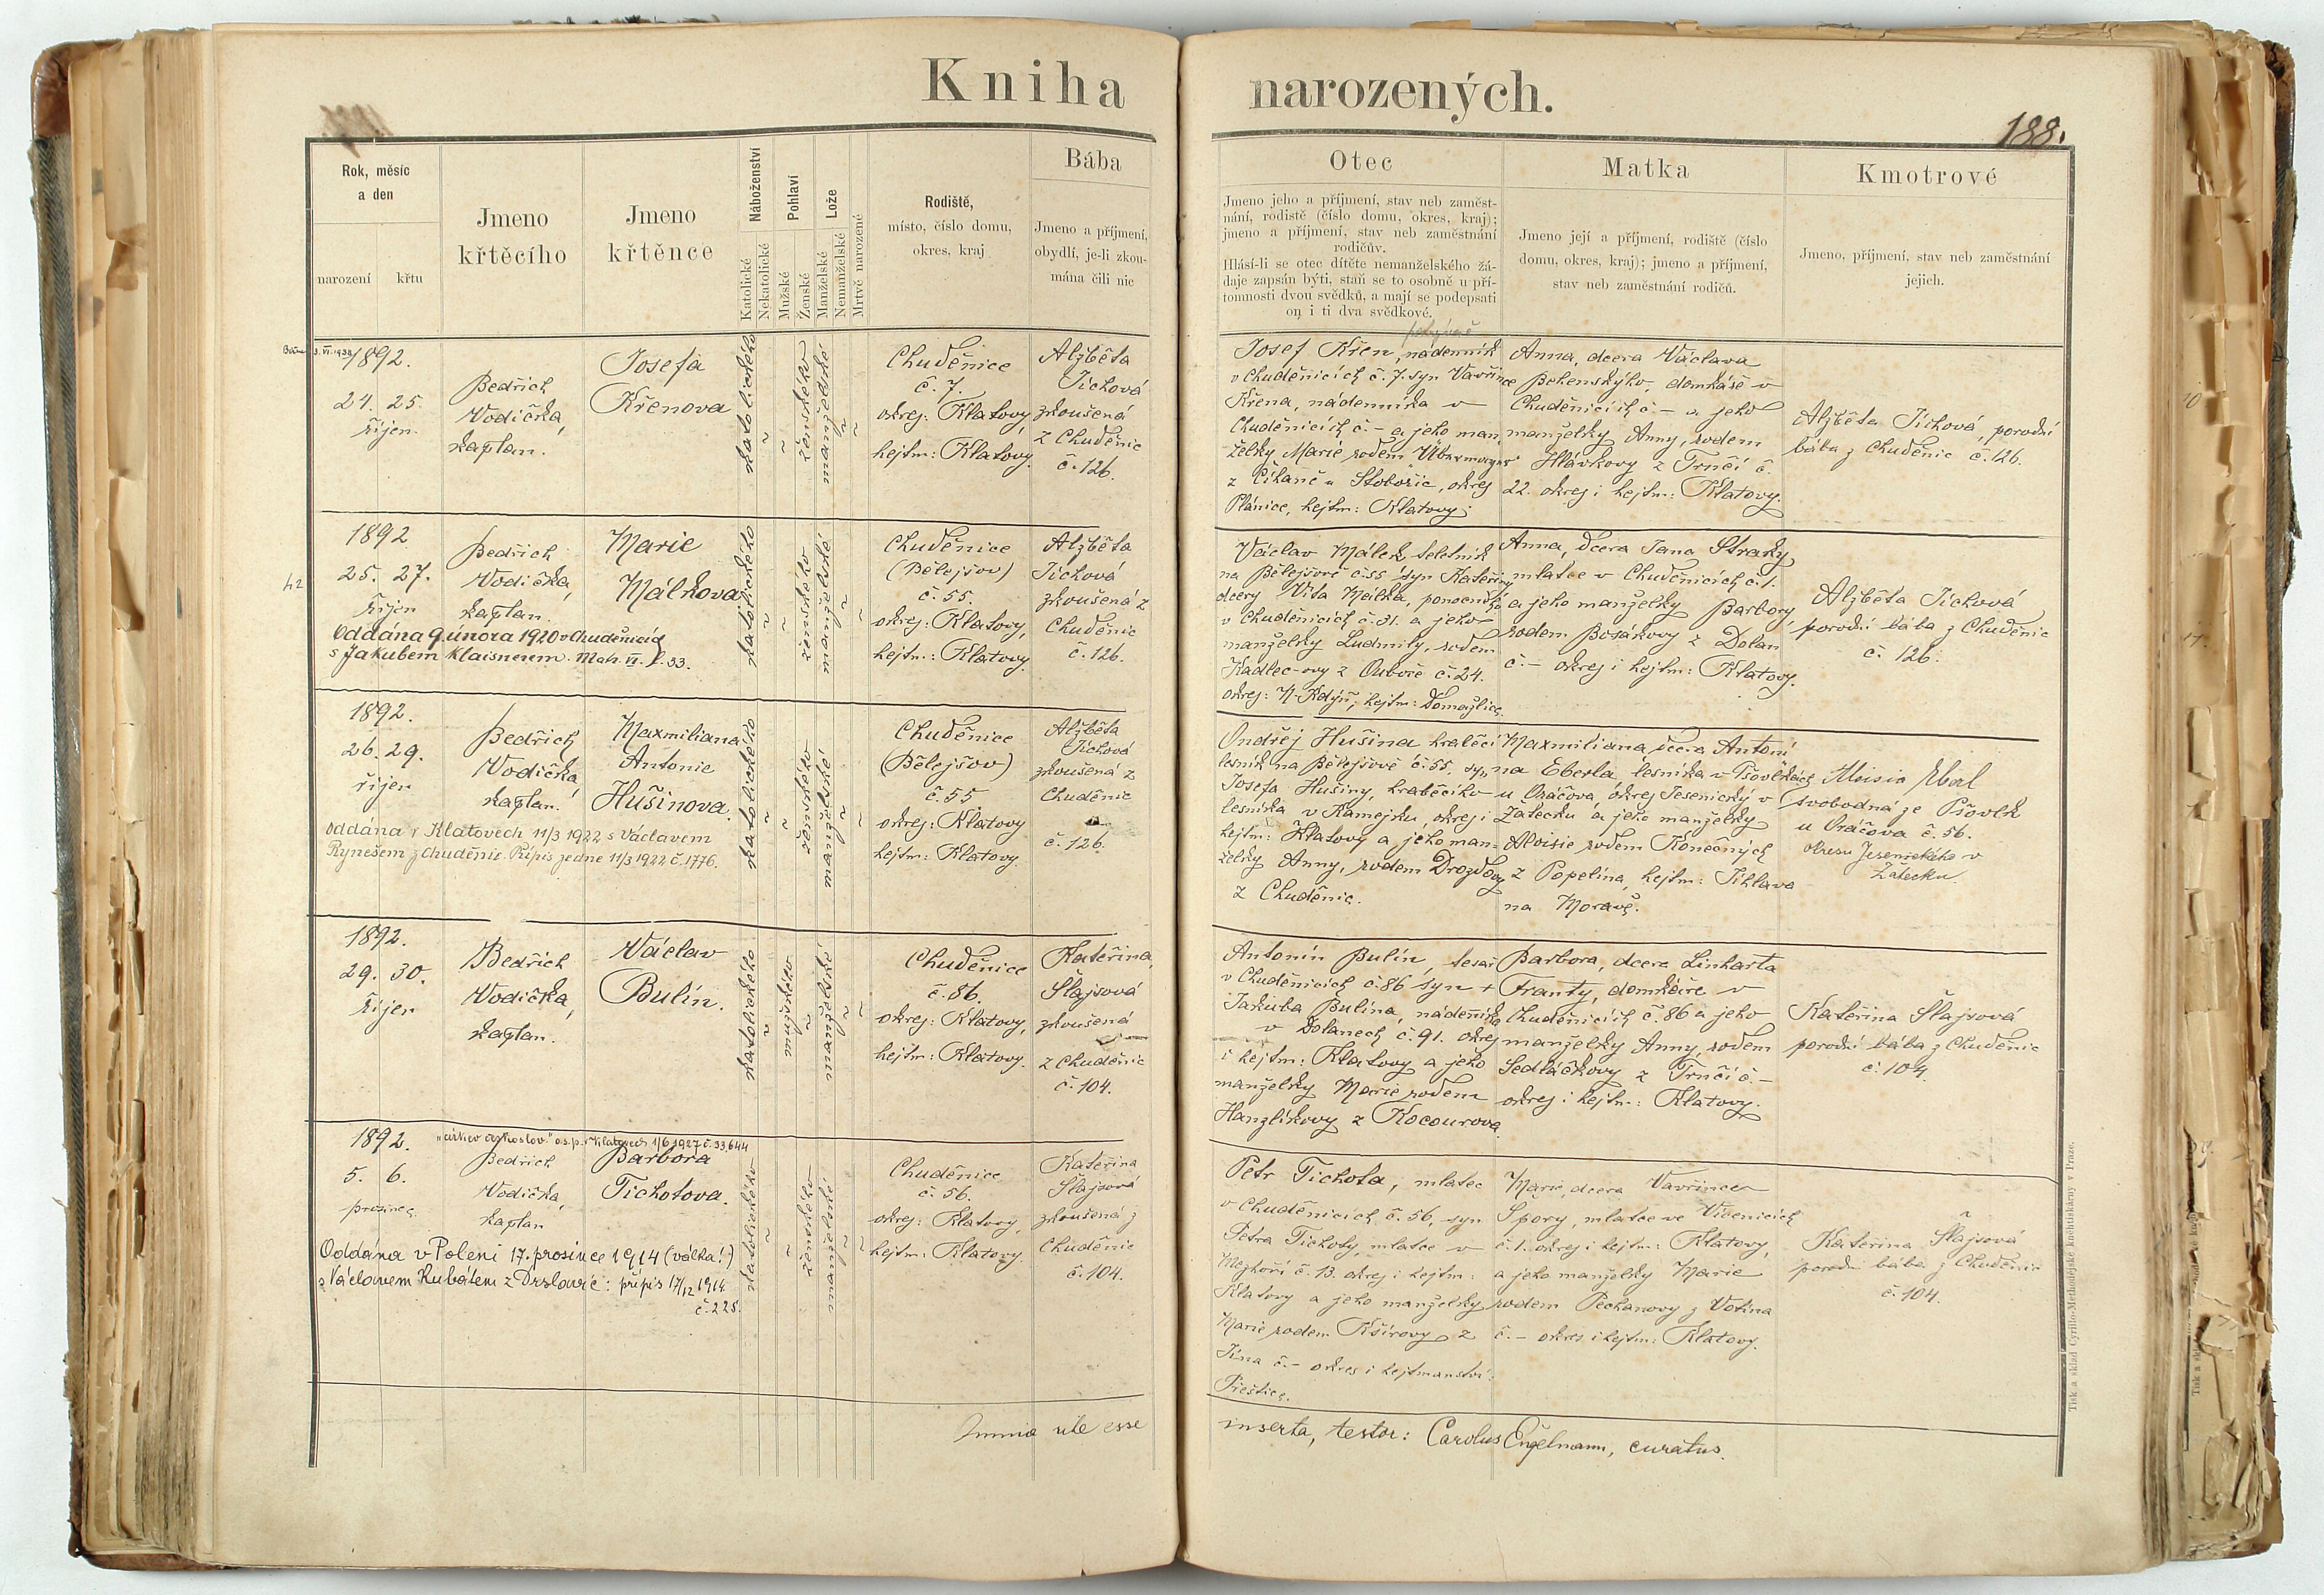 Kniha narozených.
188.
Rok, měsíc
a den
narození
křtu
Jmeno
křtěcího
Jmeno
křtěnce
Náboženství
Katolické
Nekatolické
Pohlaví
Mužské
Ženské
Lože
Manželské
Nemanželské
Mrtvě narozené
Rodiště,
místo, číslo domu,
okres, kraj
Bába
Jmeno a příjmení,
obydlí, je-li zkou-
mána čili nic
Otec
Jmeno jeho a příjmení, stav neb zaměst-
nání, rodiště (číslo domu, okres, kraj);
jmeno a příjmení, stav neb zaměstnání
rodičův.
Hlásí-li se otec dítěte nemanželského žá-
daje zapsán býti, staň se to osobně u pří-
tomnosti dvou svědků, a mají se podepsati
on i ti dva svědkové.
Matka
Jmeno její a příjmení, rodiště (číslo
domu, okres, kraj); jmeno a příjmení,
stav neb zaměstnání rodičů.
Kmotrové
Jmeno, příjmení, stav neb zaměstnání
jejich.
1892.
24. 25.
říjen
Bedřich
Vodička,
kaplan.
Josefa
Křenova
katolického
ženského
manželské
Chuděnice
č. 7.
okres: Klatovy,
hejtm: Klatovy.
Alžběta
Tichová
zkoušená
z Chuděnic
č. 126.
Josef Křen, nádenník
v Chuděnicích č. 7. syn Vavřince
Křena, nádenníka v
Chuděnicích č. – a jeho man-
želky Marie rodem
z Číhaně u Stobořic, okres
Plánice, hejtm: Klatovy.
Anna, dcera Václava
domkáře v
Chuděnicích č. – a jeho
manželky Anny, rodem
Hlávkovy z Trnčí č.
22. okres i hejtm: Klatovy.
Alžběta Tichová, porodní
bába z Chuděnic č. 126.
1892
25. 27.
říjen
Bedřich
Vodička,
kaplan.
Marie
Málkova
katolického
ženského
manželské
Chuděnice
(Bělejšov)
č. 55.
okres: Klatovy,
hejtm.: Klatovy.
Alžběta
Tichová
zkoušená z
Chuděnic
č. 126.
Oddána 9. února 1920 v Chuděnicích
s Jakubem Klaisnerem. Matr. VI. f. 33.
Václav Málek
na Bělejšově č. 55 syn Kateřiny
dcery Víta Málka,
v Chuděnicích č. 31. a jeho
manželky Ludmily, rodem
Kadlec-ovy z Ouboče č. 24.
okres: N. Kdýň, hejtm: Domažlice.
Anna, dcera Jana Straky
mlatce v Chuděnicích č. 1.
a jeho manželky Barbory,
rodem Bosákovy z Dolan
č. – okres i hejtm: Klatovy.
Alžběta Tichová
porodní bába z Chuděnic
č. 126.
1892.
26. 29.
říjen
Bedřich
Vodička,
kaplan.
Maxmiliana
Antonie
Hušinova.
katolického
ženského
manželské
Chuděnice
(Bělejšov)
č. 55
okres: Klatovy
hejtm: Klatovy.
Alžběta
Tichová
zkoušená z
Chuděnic
č. 126.
Oddána v Klatovech 11/3 1922 s Václavem
Rynešem z Chuděnic. Přípis z 11/3 1922 č. 1776.
Ondřej Hušina hraběcí
lesník na Bělejšově č. 55, syn
Josefa Hušiny, hraběcího
lesníka v Kamejsku, okres i
hejtm: Klatovy a jeho man-
želky Anny, rodem Drozdovy
z Chuděnic.
Maxmiliana, dcera Antoní-
na Eberla lesníka v Pšovlkách
u Oráčova okres Jesenický v
Žatecku a jeho manželky
Aloisie rodem Konečných
z Popelína, hejtm: Jihlava
na Moravě.
Aloisia Eberl
svobodná ze Pšovlk
u Oráčova č. 56.
okresu Jesenického v
Žatecku.
1892.
29. 30.
říjen
Bedřich
Vodička,
kaplan.
Václav
Bulín.
katolického
mužského
manželské
Chuděnice
č. 86.
okres: Klatovy,
hejtm: Klatovy.
Kateřina
Šlajsová
zkoušená
z Chuděnic
č. 104.
Antonín Bulín, tesař
v Chuděnicích č. 86 syn +
Jakuba Bulína, nádeníka
v Dolanech č. 91. okres
i hejtm: Klatovy a jeho
manželky Marie rodem
Hanzlíkovy z Kocourova.
Barbora, dcera Linharta
Franty, domkáře v
Chuděnicích č. 86 a jeho
manželky Anny, rodem
Sedláčkovy z Trnčí č. –
okres i hejtm: Klatovy.
Kateřina Šlajsová
porodní bába z Chuděnic
č. 104.
1892.
5. 6.
prosinec
Bedřich
Vodička,
kaplan
Barbora
Tichotova.
katolického
ženského
manželské
Chuděnice
č. 56.
okres: Klatovy,
hejtm: Klatovy.
Kateřina
Šlajsová
zkoušená z
Chuděnic
č. 104.
Oddána v Poleni 17. prosince 1914 (válka!)
s Václavem Kubátem z Drslavic: přípis 17/12 1914.
č. 225.
Petr Tichota, mlatec
v Chuděnicích č. 56, syn
Petra Tichoty, mlatce v
Mezhoří č. 13. okres i hejtm:
Klatovy a jeho manželky
Marie rodem z
Jína č. – okres i hejtmanství:
Přeštice.
Marie, dcera Vavřince
Špory, mlatce ve Vícenicích
č. 1. okres i hejtm: Klatovy,
a jeho manželky Marie
rodem Pechanovy z Votína
č. – okres i hejtm: Klatovy.
Kateřina Šlajsová
porodní bába z Chuděnic
č. 104.
Omnia rite esse
inserta, testor: Carolus Engelmann, curatus.
Tisk a sklad Cyrillo-Methodějské knihtiskárny v Praze.